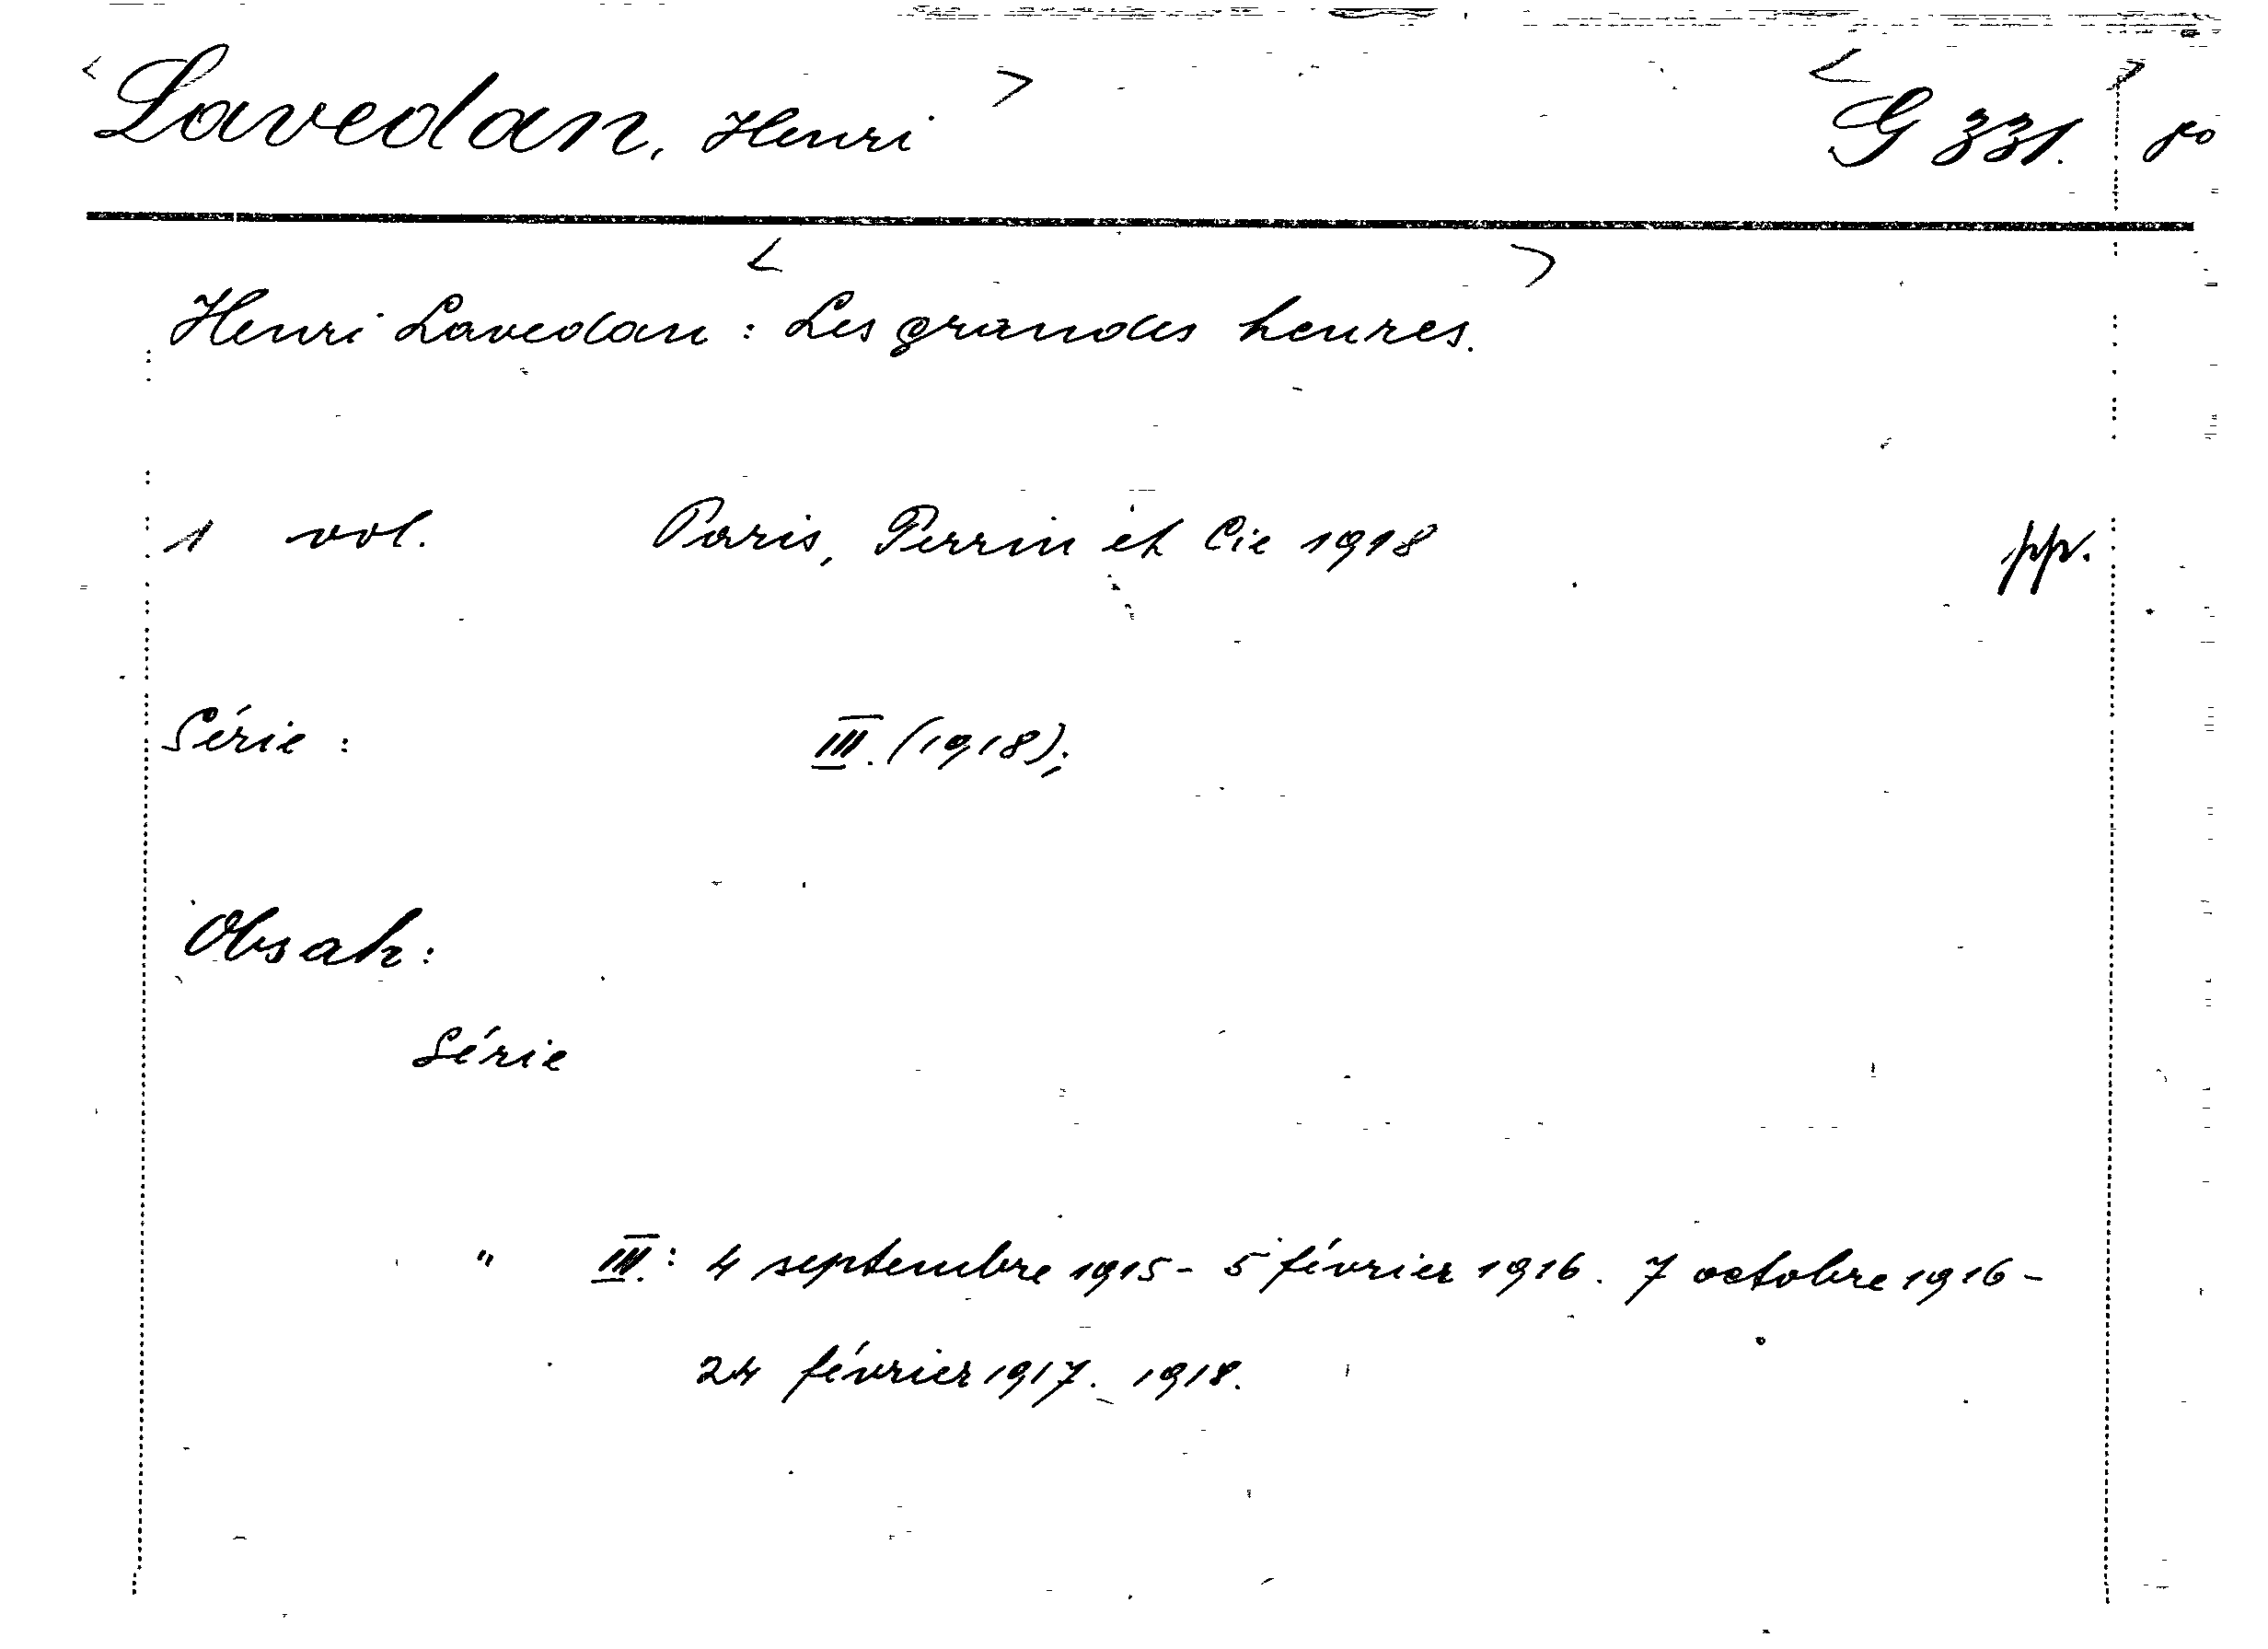 <Lavedan, Henri> <G 331.> 8°
Henri Lavedan : <Les grandes heures.>
1 vol. Paris, Perrin et Cie 1918 pp.
Série : III. (1918);
Obsah:
Série
" III.: 4 septembre 1915 - 5 février 1916. 7 octobre 1916 -
24 février 1917. 1918.